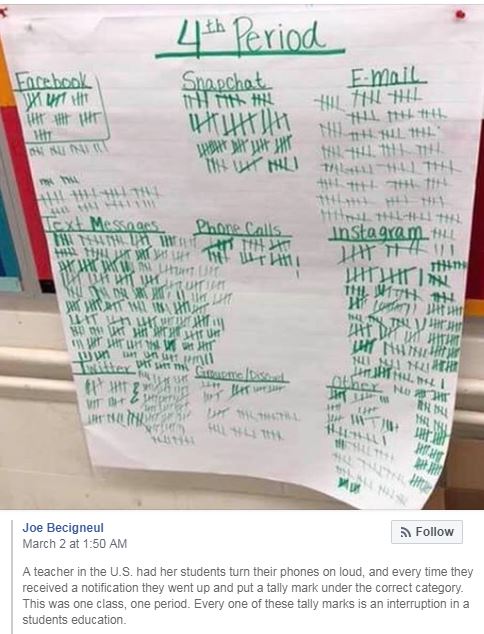 4th Period
Facebook
Snapchat
E-mail
Text Messages
Phone Calls
Instagram
Twitter
Groupme/Discord
Other
Joe Becigneul
March 2 at 1:50 AM
Follow
A teacher in the U.S. had her students turn their phones on loud, and every time they
received a notification they went up and put a tally mark under the correct category.
This was one class, one period. Every one of these tally marks is an interruption in a
students education.